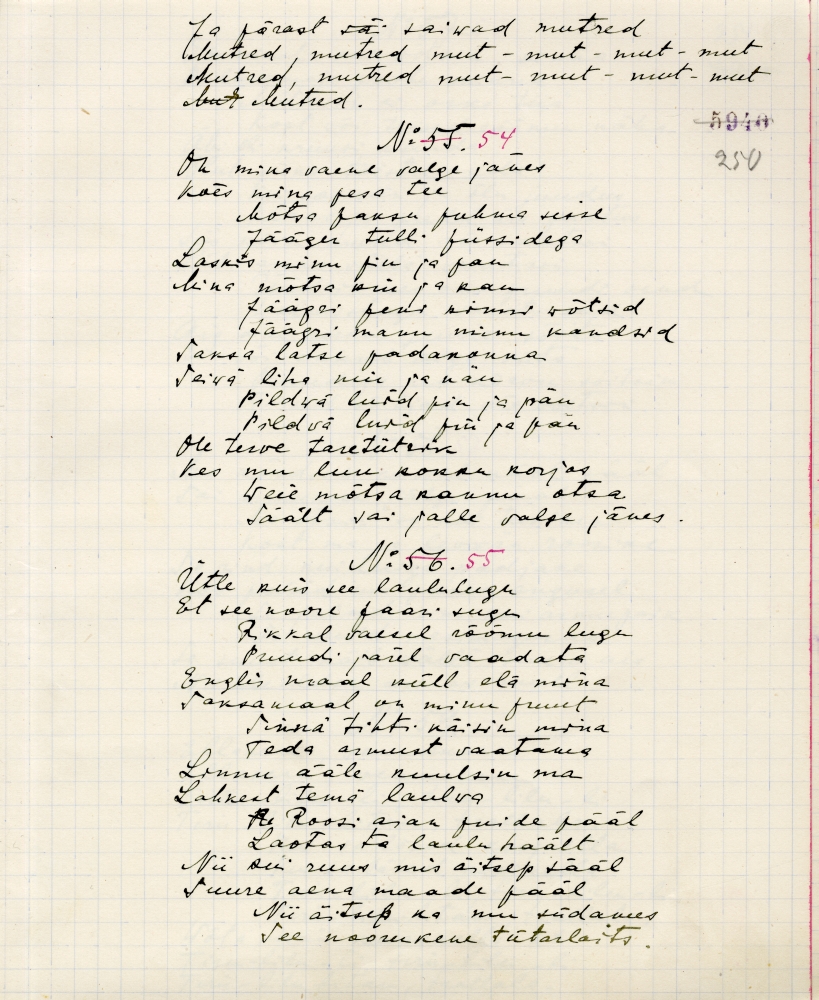 Ja pärast sä saiwad mutred
Mutred, mutred mut - mut - mut - mut
Mutred, mutred mut - mut - mut - mut
Mut Mutred.
№ 55. 54
5940
250
Oh mina vaene valge jänes
Koes mina pesa tee
Mõtsa paksu puhma sisse
Jääger tulli püssidega
Laskis minu pin ja pan
Mina mõtsa kin ja kan
Jäägri peni kinni wõtsid
Jäägri manu minu kandsid
Saksa latse padakonna
Seiwä liha nin ja nän
Pildwä luid pin ja pän
Pildvä luid pin ja pän
Ole terve taretütrik
Kes mu luu kokku korjas
Weie mõtsa kannu otsa
Säält sai jalle valge jänes.
№ 56. 55
Ütle kuis see laululugu
Et see noore paari sugu
Rikkal vaesel rõõmu lugu
Pruudi parel vaadata
Englis maal küll elä mina
Saksamaal on minu pruut
Sinnä tihti käisin mina
Teda armust vaatama
Linnu ääle kuulsin ma
Lahkest temä laulwa
Ro Roosi aian puide pääl
Laotas ta laulu häält
Nii kui ruus mis äitsep sääl
Suure aena maade pääl
Nii äitsep ka mu südames
See noorukene tütarlaits.